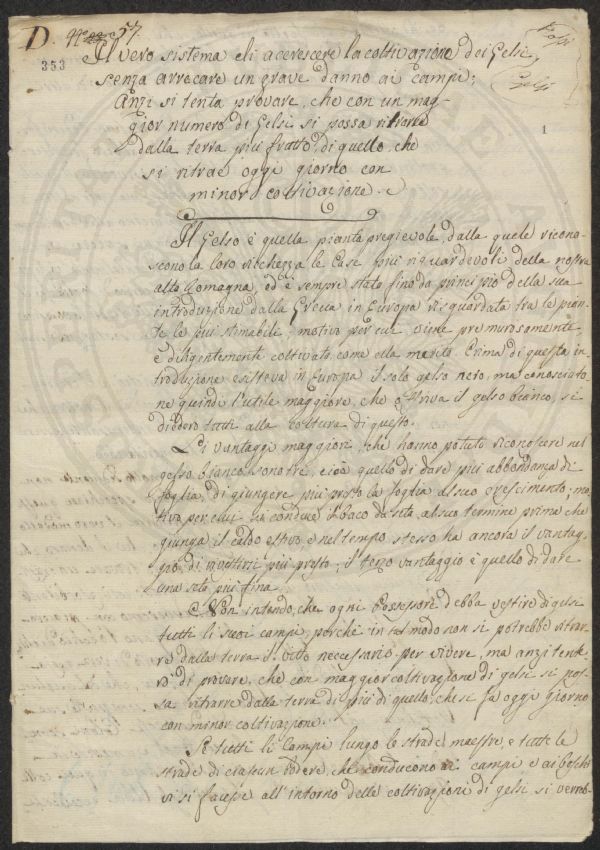 D. 57.
353
Il vero sistema di accrescere la coltivazione dei Gelsi,
senza arrecare un grave danno ai campi;
Anzi si tenta provare, che con un mag-
gior numero di Gelsi si possa ritrarre
dalla terra più frutto, di quello che
si ritrae oggi giorno con
minor coltivazione.
Gelsi
1
Il Gelso è quella pianta pregievole, dalla quale ricono-
scono la loro ricchezza le Case più riguardevoli della nostra
alta Romagna, ed è sempre stata fino da principio della sua
introduzione dalla Grecia in Europa risguardata tra le pian-
te le più stimabile, motivo per cui viene premurosamente,
e diligentemente coltivato, come ella merita. Prima di questa in-
troduzione esisteva in Europa il solo gelso nero, ma conosciuto-
ne quindi l'utile maggiore, che deriva il gelso bianco, si
diedero tutti alla coltura di questo.
Li vantaggi maggiori, che hanno potuto riconoscere nel
gelso bianco sono tre, cioè quello di dare più abbondanza di
foglia, di giungere più presto la foglia al suo crescimento; mo-
tivo per cui si conduce il baco da seta al suo termine prima che
giunga il caldo estivo e nel tempo stesso ha ancora il vantag-
gio, di più presto; il terzo vantaggio è quello di dare
una seta più fina.
Non intendo, che ogni Possessore debba vestire di gelsi
tutti li suoi campi, perché in tal modo non si potrebbe ritrar-
re dalla terra il vitto necessario per vivere, ma anzi tente-
rò di provare, che con maggior coltivazione di gelsi si pos-
sa ritrarre dalla terra di più di quello, che si fa oggi giorno
con minor coltivazione.
Se tutti li Campi lungo le strade maestre, e tutte le
strade di ciascun Podere, che conducono ai campi e ai boschi
vi si facesse all'intorno delle coltivazioni di gelsi si verreb-